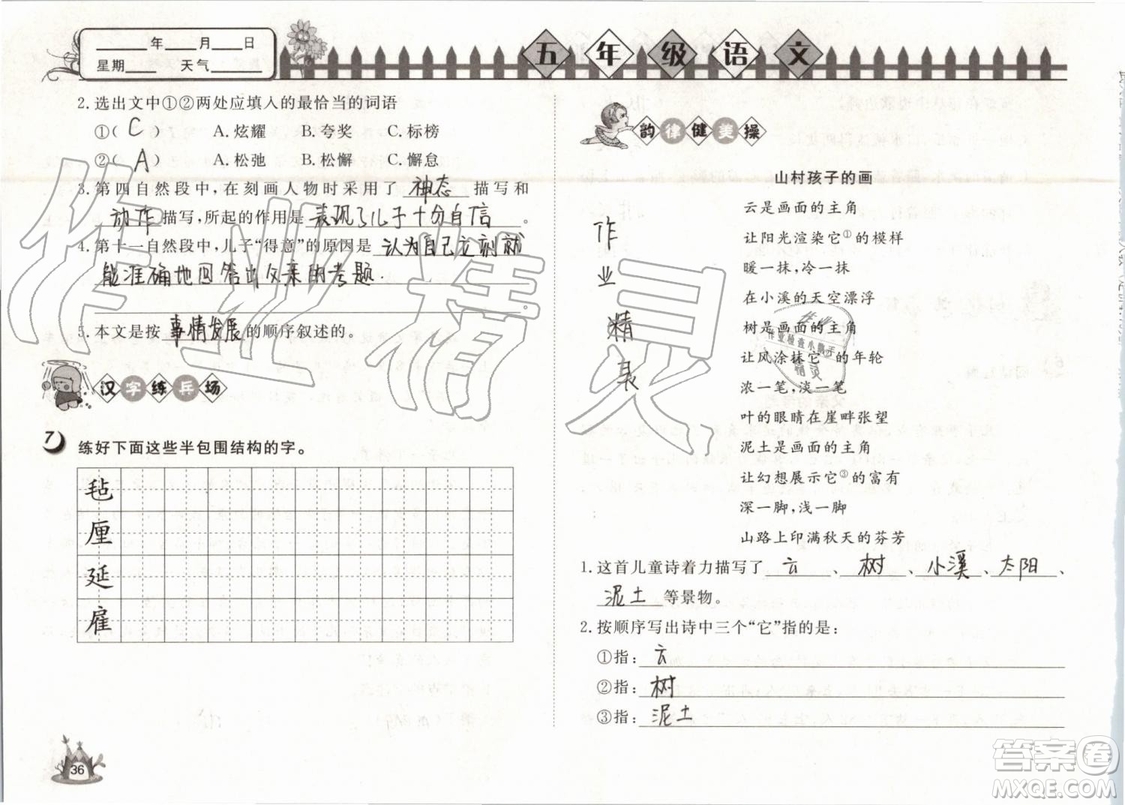 ____年____月____日
星期____ 天气____
五年级语文
2.选出文中①②两处应填入的最恰当的词语
①( C ) A.炫耀 B.夸奖 C.标榜
②( A ) A.松弛 B.松懈 C.懈怠
3.第四自然段中,在刻画人物时采用了 神态 描写和
动作 描写,所起的作用是 表现了儿子十分自信 。
4.第十一自然段中,儿子“得意”的原因是 认为自己立刻就
能准确地回答出父亲的考题.
5.本文是按 事情发展 的顺序叙述的。
汉字练兵场
7 练好下面这些半包围结构的字。
毡
厘
延
雇
36
韵律健美操
山村孩子的画
云是画面的主角
让阳光渲染它①的模样
暖一抹,冷一抹
在小溪的天空漂浮
树是画面的主角
让风涂抹它②的年轮
浓一笔,淡一笔
叶的眼睛在崖畔张望
泥土是画面的主角
让幻想展示它③的富有
深一脚,浅一脚
山路上印满秋天的芬芳
1.这首儿童诗着力描写了 云 、 树 、 小溪 、 太阳 、
泥土 等景物。
2.按顺序写出诗中三个“它”指的是:
①指: 云
②指: 树
③指: 泥土
作业精灵
作业精灵
答案卷